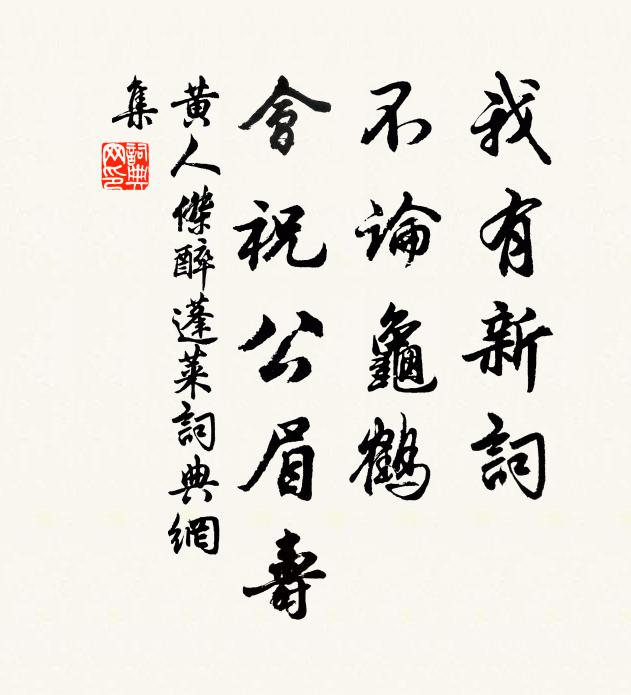 我有新詞
不論龜鶴
會祝公眉壽
黃人傑醉蓬萊詞典網
集
詞典
网